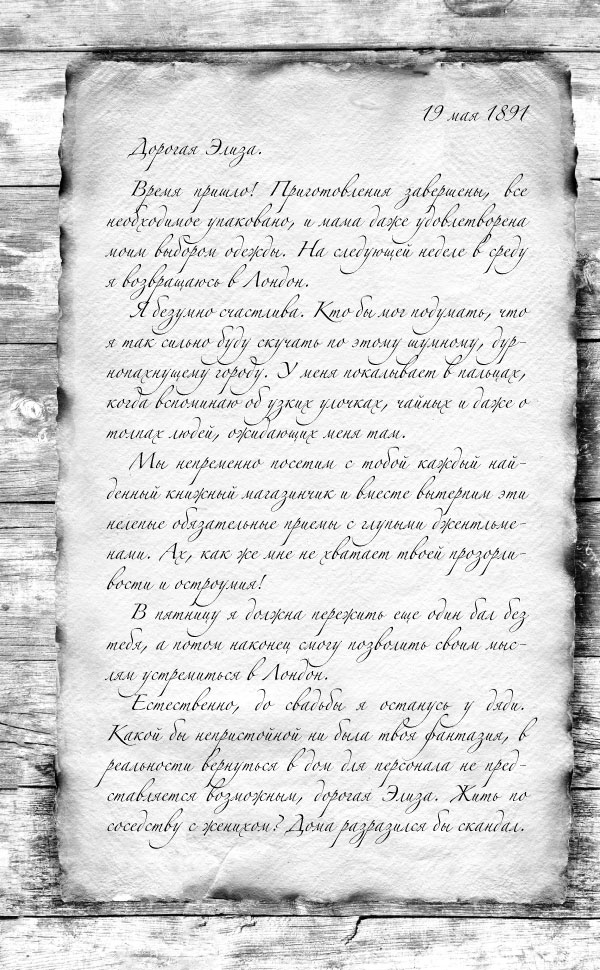 19 мая 1891
Дорогая Элиза.
Время пришло! Приготовления завершены, все
необходимое упаковано, и мама даже удовлетворена
моим выбором одежды. На следующей неделе в среду
я возвращаюсь в Лондон.
Я безумно счастлива. Кто бы мог подумать, что
я так сильно буду скучать по этому шумному, дур-
нопахнущему городу. У меня покалывает в пальцах,
когда вспоминаю об узких улочках, чайных и даже о
толпах людей, ожидающих меня там.
Мы непременно посетим с тобой каждый най-
денный книжный магазинчик и вместе вытерпим эти
нелепые обязательные приемы с глупыми джентльме-
нами. Ах, как же мне не хватает твоей прозорли-
вости и остроумия!
В пятницу я должна пережить еще один бал без
тебя, а потом наконец смогу позволить своим мыс-
лям устремиться в Лондон.
Естественно, до свадьбы я останусь у дяди.
Какой бы непристойной ни была твоя фантазия, в
реальности вернуться в дом для персонала не пред-
ставляется возможным, дорогая Элиза. Жить по
соседству с женихом? Дома разразился бы скандал.